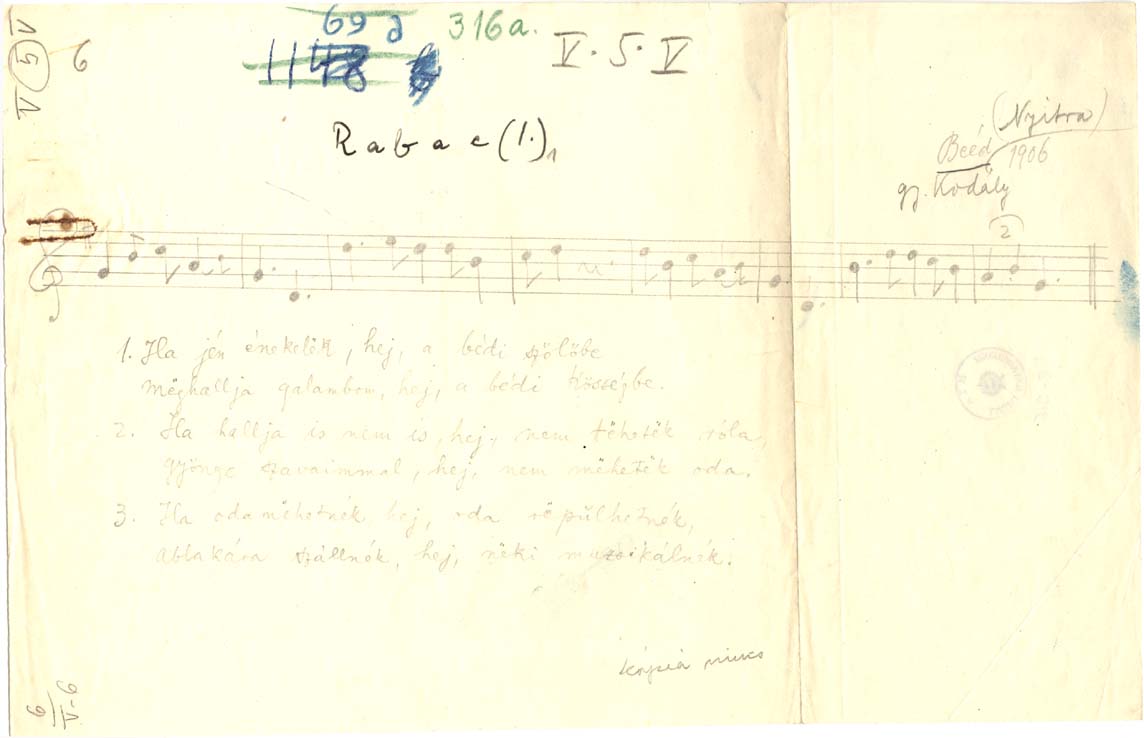 69 d 316a.
V. 5. V
6
V 5 V
Rabac (1.) 1
(Nyitra)
Beéd 1906
gy. Kodály
2
1. Ha jén énekelëk, hej, a bédi szőlőbe
mëghallja galambom, hej, a bédi községbe.
2. Ha hallja is nem is, hej, nem tëhetëk róla,
gyönge szavaimmal, hej, nem mëhetëk oda.
3. Ha oda mëhetnék, hej, oda röpűlhetnék,
ablakára szállnék, hej, nëki muzsikálnék.
kópia nincs